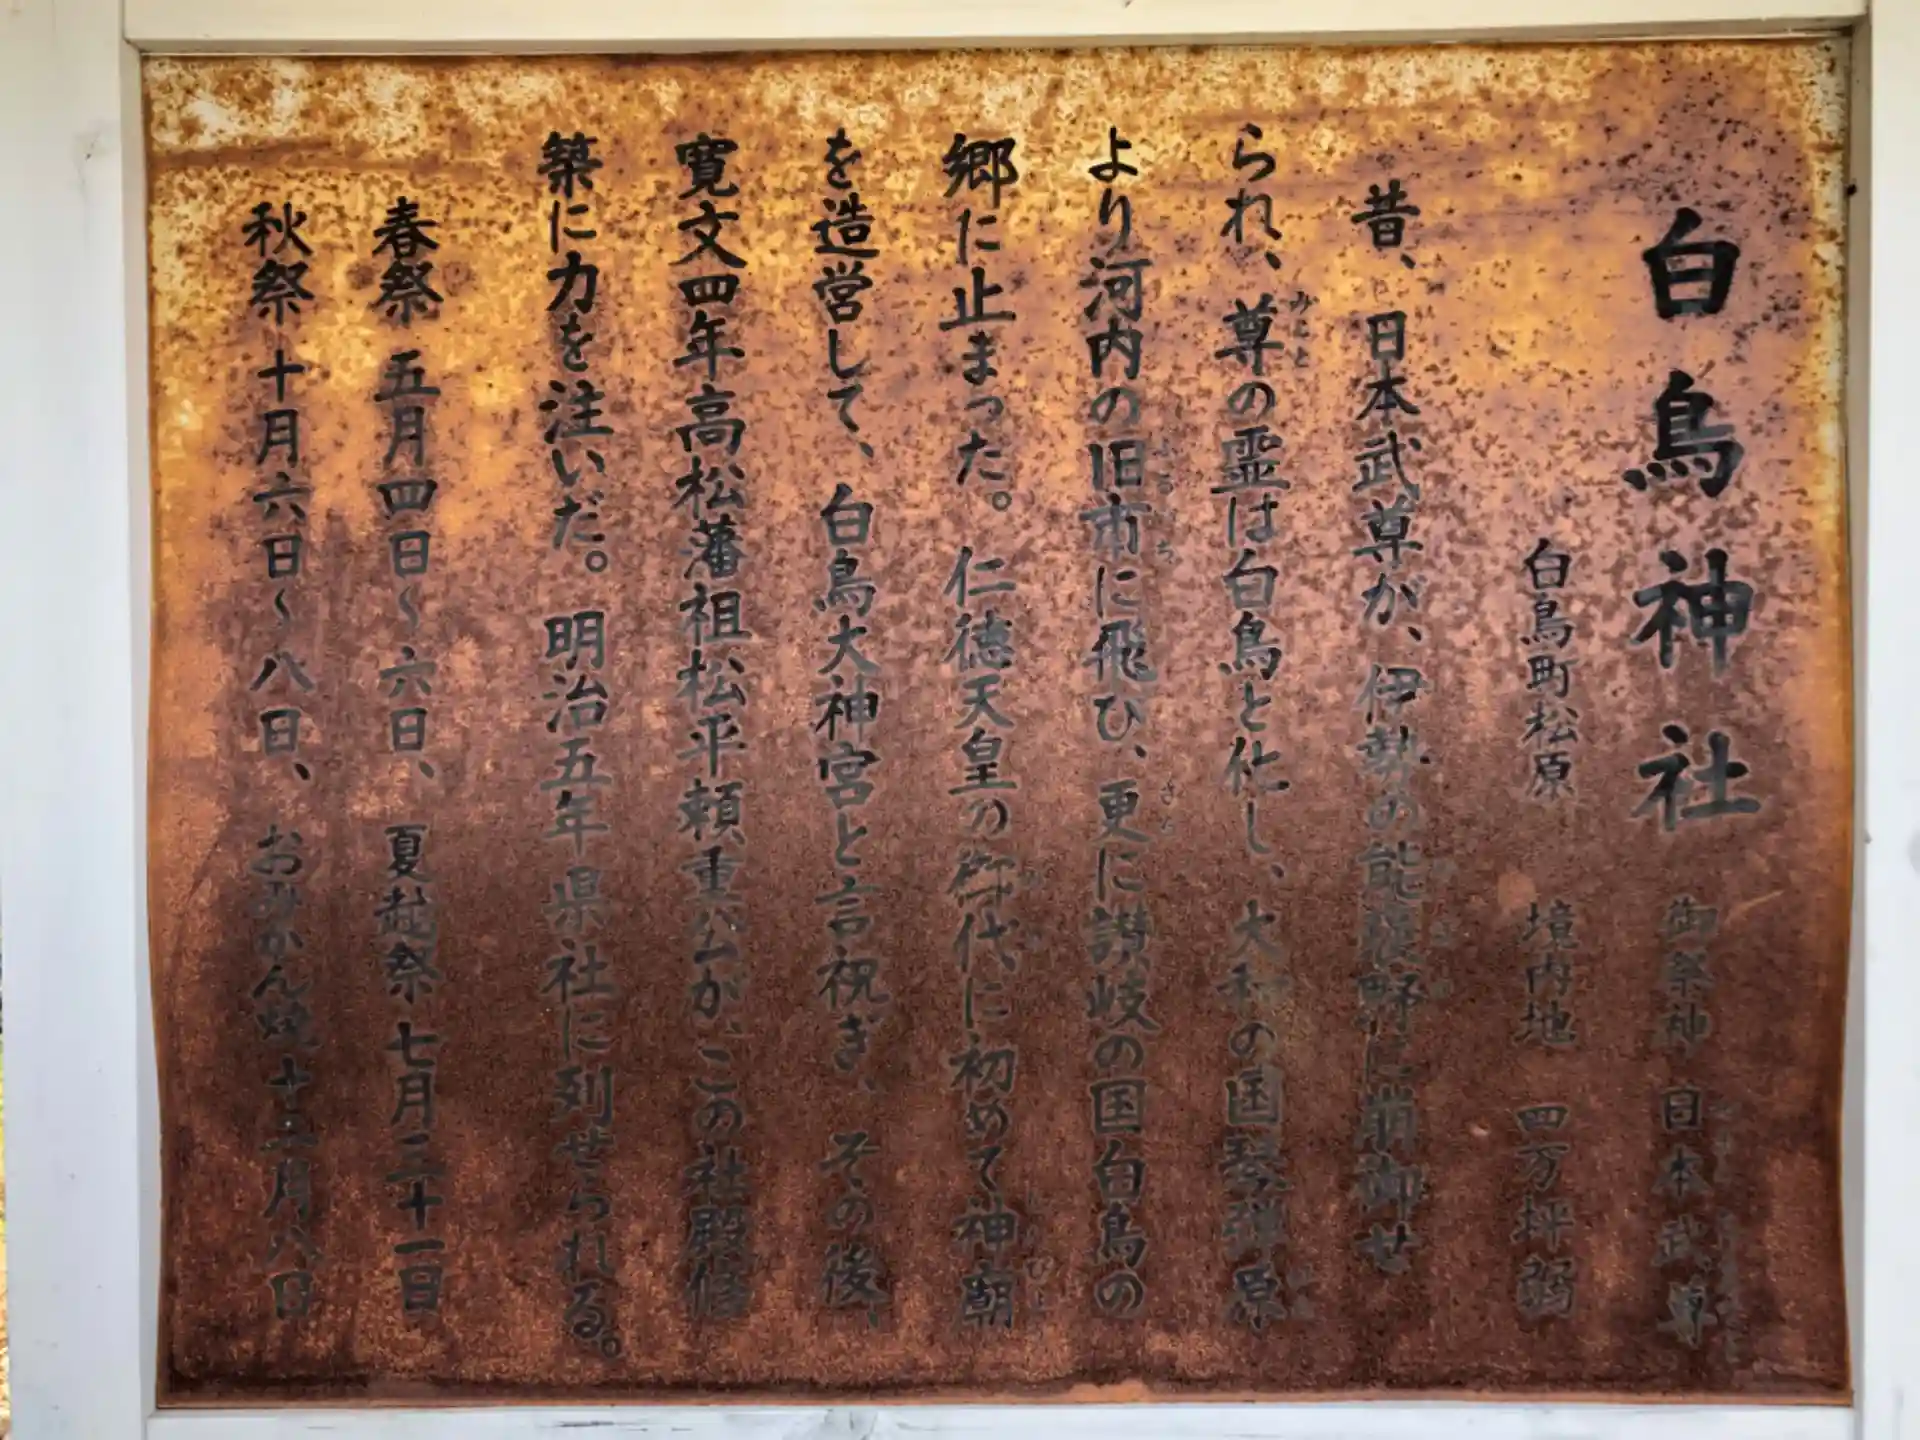 白鳥神社 御祭神 日本武尊
白鳥町松原 境内地 四万坪弱
昔、日本武尊が、伊勢の能褒野に崩御せ
られ、尊の霊は白鳥と化し、大和の国琴弾原
より河内の旧市に飛ひ、更に讃岐の国白鳥の
郷に止まった。仁徳天皇の御代に初めて神廟
を造営して、白鳥大神宮と言祝ぎ、その後、
寛文四年高松藩祖松平頼重公が、この社殿修
築に力を注いだ。明治五年県社に列せられる。
春祭 五月四日〜六日、夏越祭 七月三十一日
秋祭 十月六日〜八日、おみかん焼 十二月八日